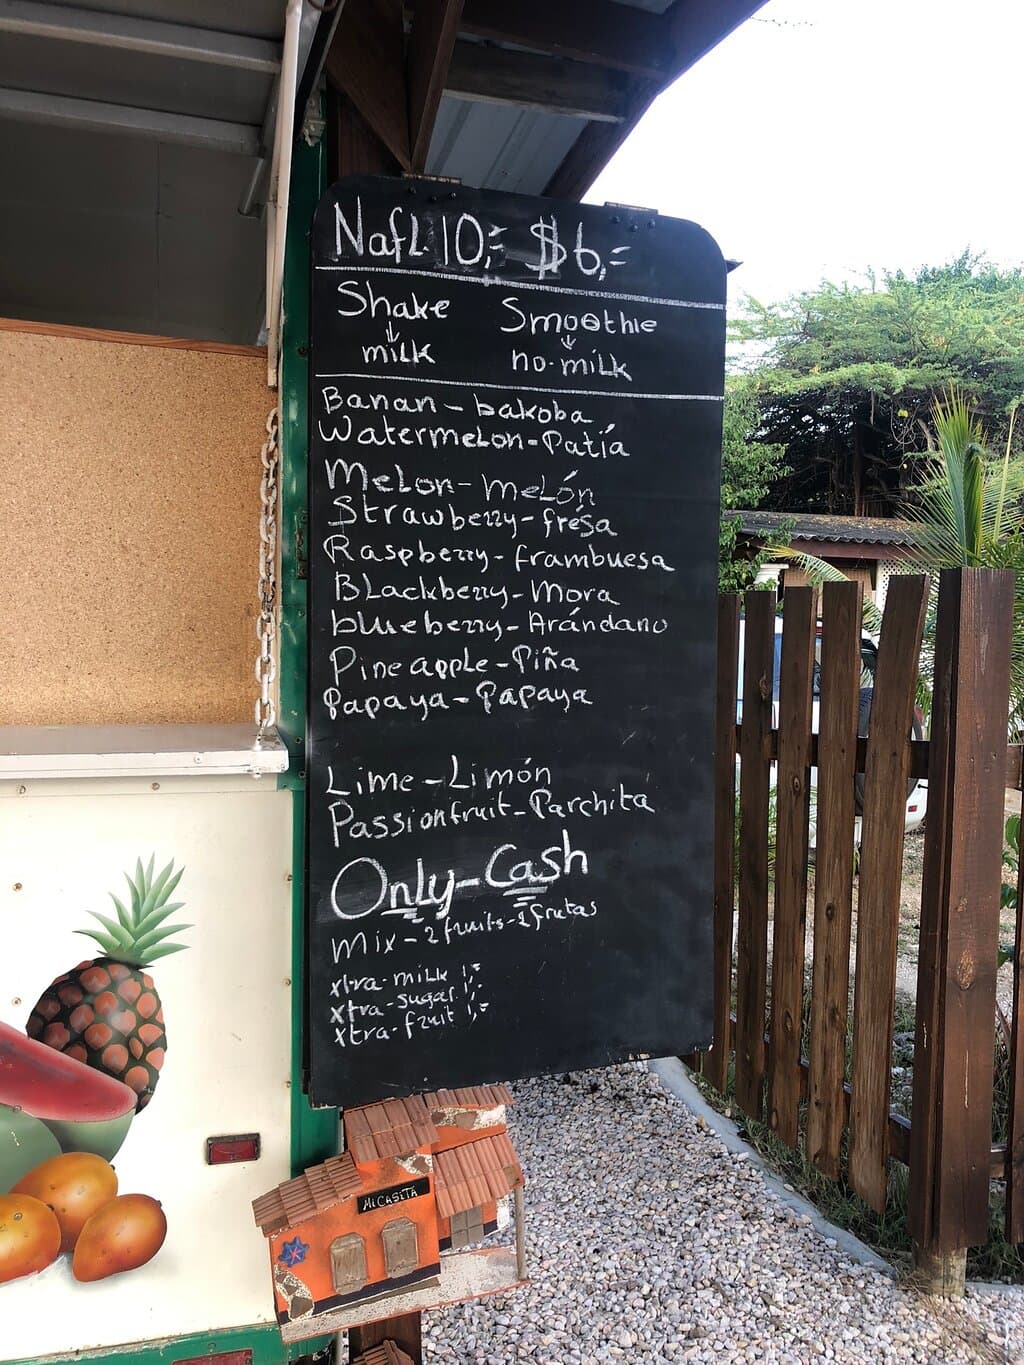 Nafl. 10,= $6,=
Shake Smoothie
↓ ↓
milk no-milk
Banan - bakoba
Watermelon - Patía
Melon - Melón
Strawberry - fresa
Raspberry - frambuesa
Blackberry - Mora
blueberry - Arándano
Pineapple - Piña
Papaya - Papaya
Lime - Limón
Passionfruit - Parchita
Only - Cash
mix - 2 fruits - 2 frutas
xtra - milk 1,=
xtra - sugar 1,=
xtra - fruit 1,=
MI CASITA